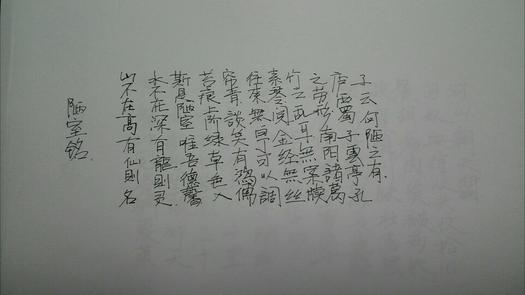 陋室铭
山不在高有仙則名
水不在深有龍則灵
斯是陋室唯吾德馨
苔痕阶绿草色入
帘青談笑有鴻儒
往來無白丁可以調
素琴閱金经無丝
竹之乱耳無案牍
之劳形南阳諸葛
庐西蜀子雲亭孔
子云何陋之有